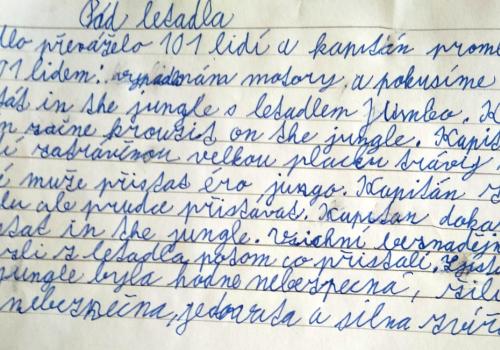 Pád letadla
dlo převáželo 101 lidí a kapitán prome
lidem: nám motory a pokusíme
in the jungle s letadlem Jumbo. K
začne kroužit on the jungle. Kapit
velkou placku trávy
může přistat éro jungo. Kapitán
ale prudce přistávat. Kapitan doka
in the jungle. Všichni
z letadla potom co přistáli.
jungle byla hodně nebezpečná, sil
nebezpečna, jedovata a silna zvíř